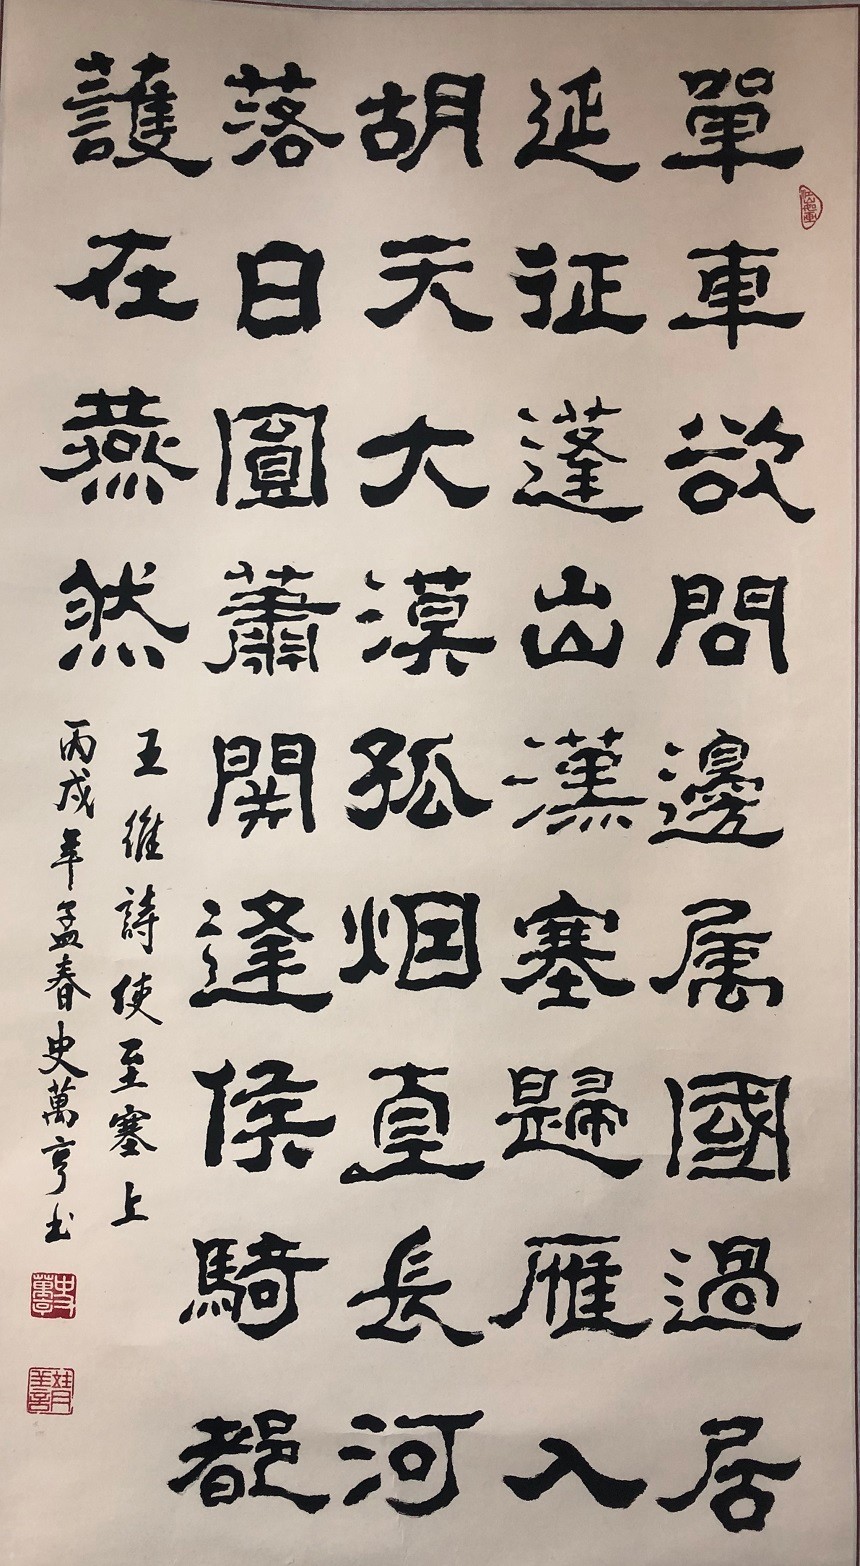 單車欲問邊属國過居
延征蓬出漢塞歸雁入
胡天大漠孤烟直長河
落日圓蕭開逢侯騎都
護在燕然
王維詩使至塞上
丙戌年孟春史萬亨书
史萬亨